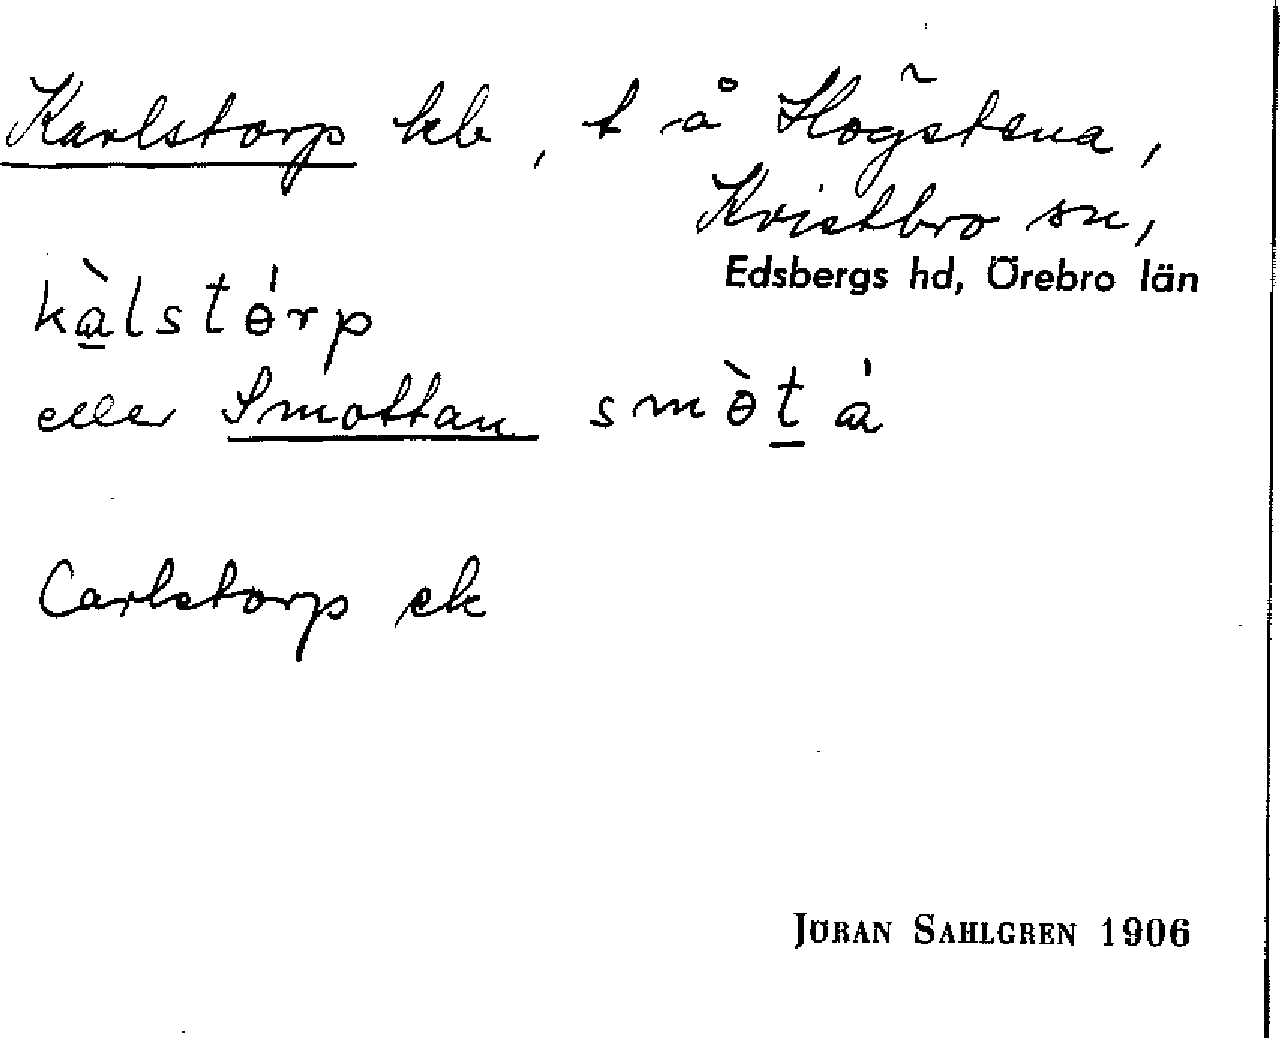 Karlstorp hb, t å Högstena,
Kvistbro sn,
Edsbergs hd, Örebro län
kàlstɵ́rp
eller Smottan smɵ̀tá
Carlstorp ek
JÖRAN SAHLGREN 1906